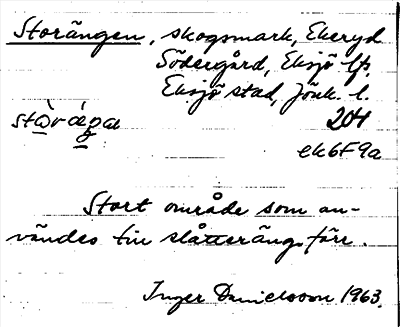 Storängen, skogsmark, Ekeryd
Södergård, Eksjö lfs.
Eksjö stad, Jönk. l.
204
ek6F9a
Stort område som an-
vändes till slåtteräng förr.
Inger Danielsson 1963.